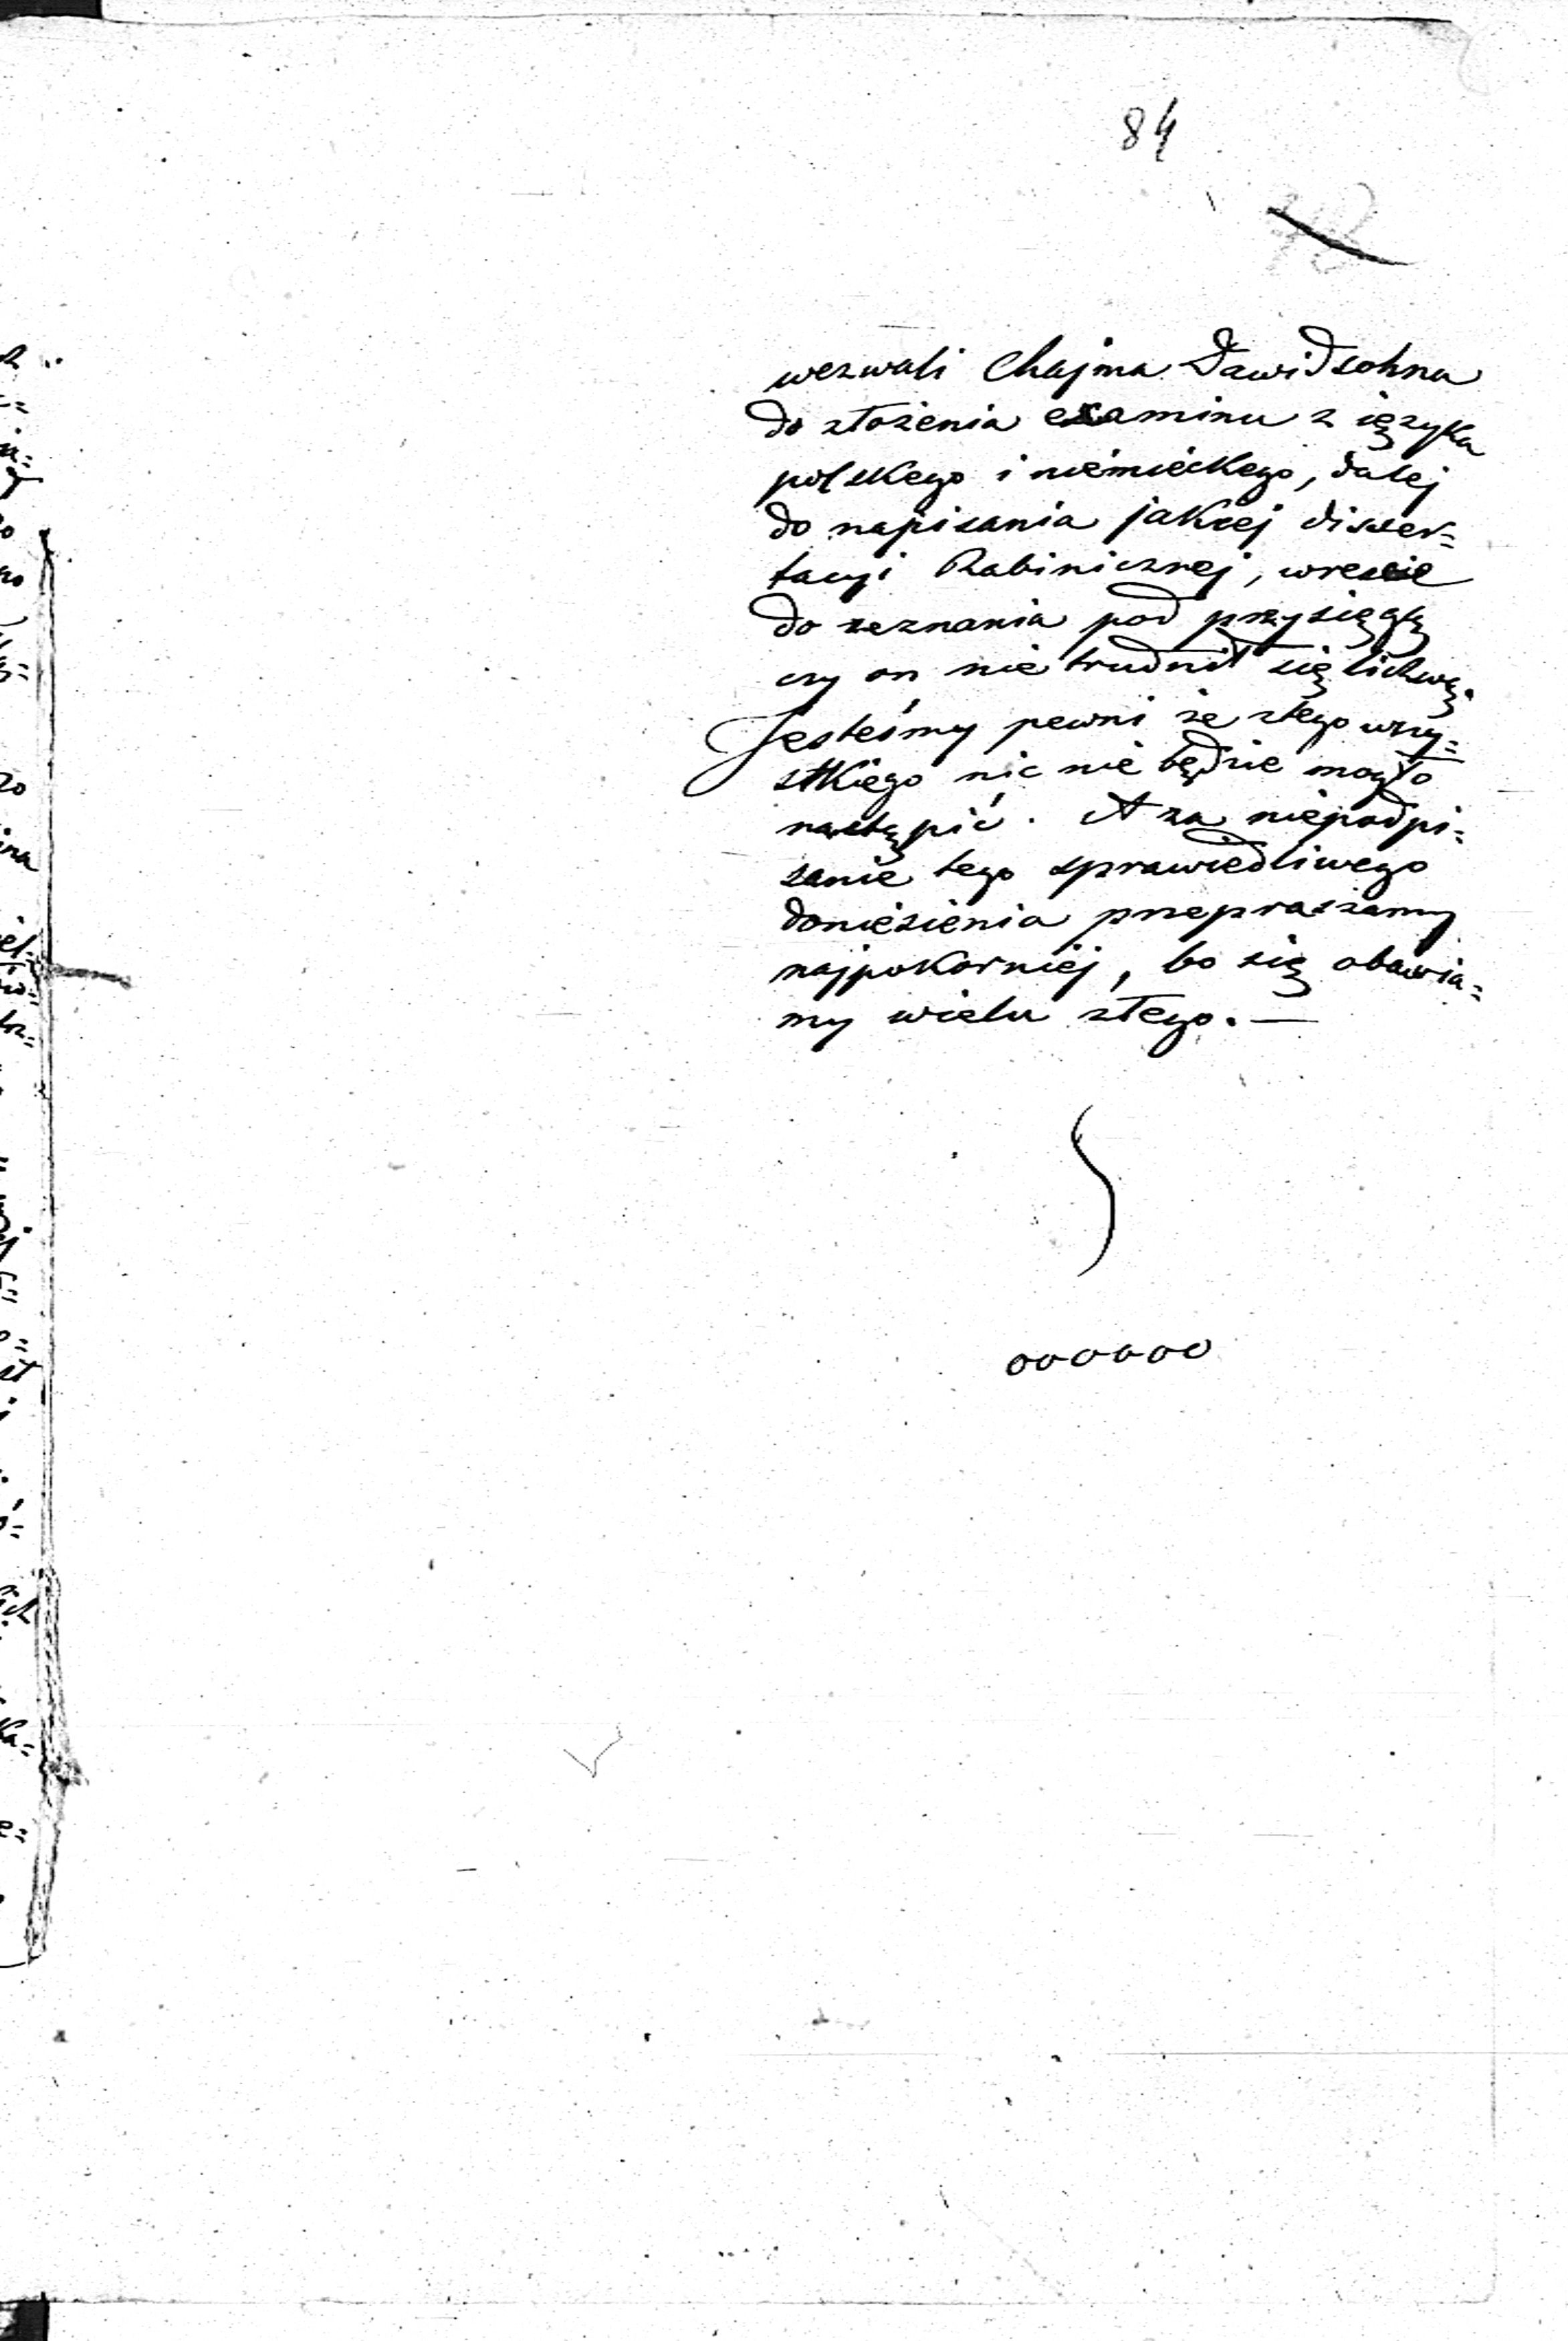 84
wezwali Chajma Dawidsohna
do złożenia examinu z ięzyka
polskego i niemieckego, dalej
do napisania jakiej disser=
tacyi Rabinicznej, wreście
do zeznania pod przysięgą
czy on nie trudnił się lichwą.
Jesteśmy pewni że ztego wszy=
stkiego nic nie będzie mogło
nastąpić. A za niepodpi=
sanie tego sprawiedliwego
doniesienia przepraszamy
najpokorniej, bo się obawia=
my wielu złego.—